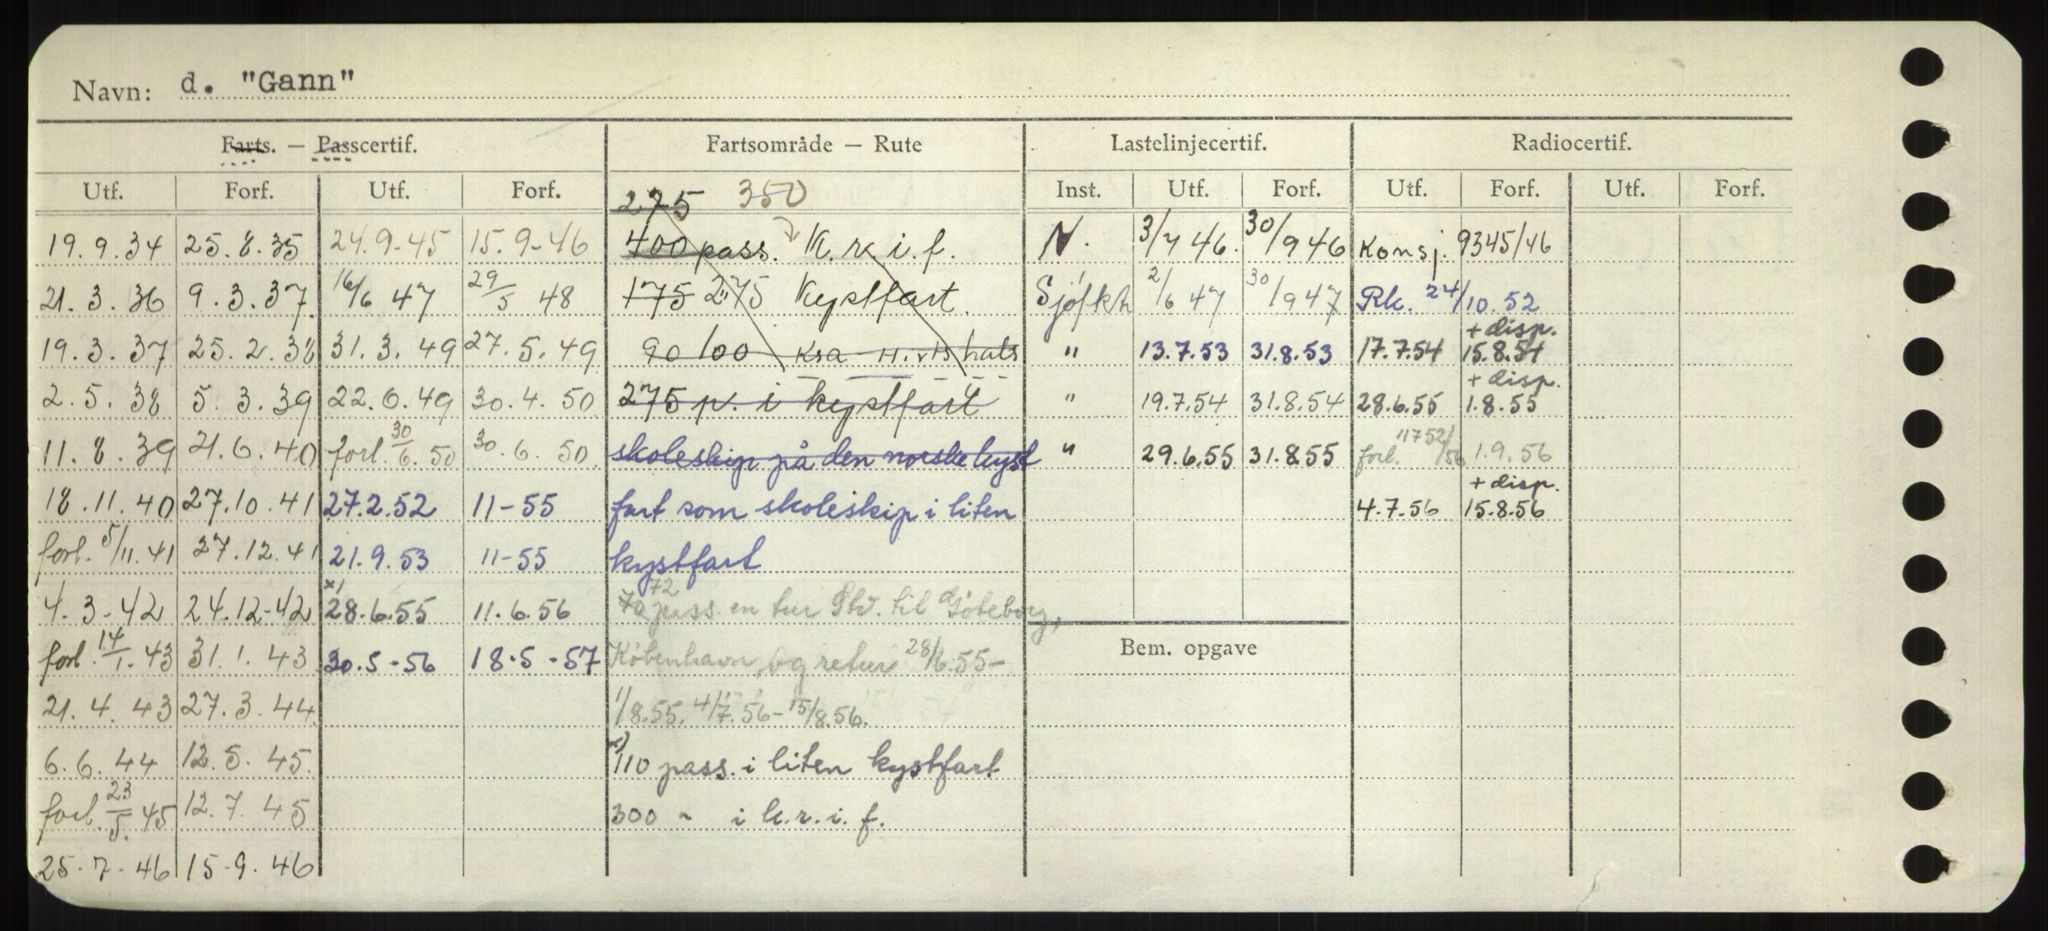 Navn: d. "Gann"
Farts. — Passcertif. Fartsområde — Rute Lastelinjecertif. Radiocertif.
Utf. Forf. Utf. Forf. 275 350 Inst. Utf. Forf. Utf. Forf. Utf. Forf.
19.9.34 25.8.35 24.9-45 15.9-46 400 pass. K.r.i.f. N. 3/7 46. 30/9 46 Konsj. 9345/46
21.3.36 9.3.37. 16/6 47 29/5 48 175 275 Kystfart. Sjöfkt 2/6 47 30/9 47 Rk. 24/10.52
+ disp.
19.3.37 25.2.38 31.3.49 27.5.49 90 100 Ksa " 13.7.53 31.8.53 17.7.54 15.8.54
+ disp.
2.5.38 5.3.39 22.6.49 30.4.50 275 p. i kystfart " 19.7.54 31.8.54 28.6.55 1.8.55
11.8.39 21.6.40 forl. 30/6.50 30.6.50 skoleskip på den norske kyst " 29.6.55 31.8.55 forl. 11752/56 1.9.56
+ disp.
18.11.40 27.10.41 27.2.52 11-55 fart som skoleskip i liten 4.7.56 15.8.56
forl. 5/11.41 27.12.41 21.9.53 11-55 kystfart
x) 72
4.3-42 24.12-42 28.6.55 11.6.56 70 pass. en tur Stv. til Göteborg,
forl. 14/1.43 31.1.43 30.5-56 18.5-57 København, og retur 28/6.55- Bem. opgave
21.4.43 27.3.44 1/8.55. 4/7.56-15/8.56.
6.6.44 12.5.45. x) 110 pass. i liten kystfart
forl. 23/5.45 12.7.45 300 " i k.r.i.f.
25.7.46 15.9.46